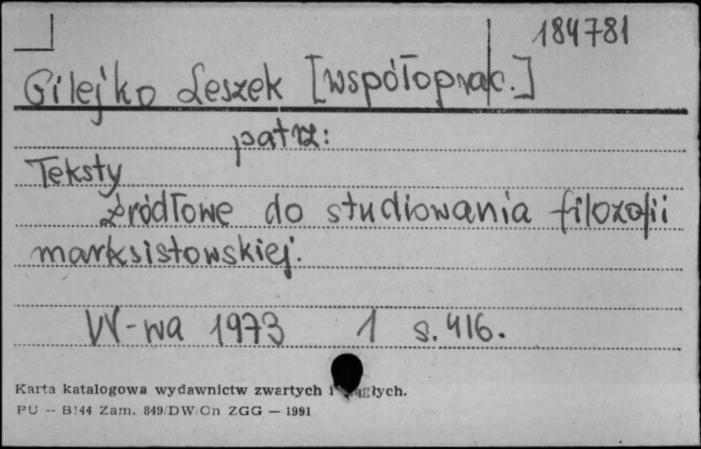 184781
Gilejko Leszek [współoprac.]
patrz:
Teksty
źródłowe do studiowania filozofii
marksistowskiej.
W-wa 1973 1 s. 416.
Karta katalogowa wydawnictw zwartych i ciągłych.
PU -- B!44 Zam. 849/DW/On ZGG — 1991